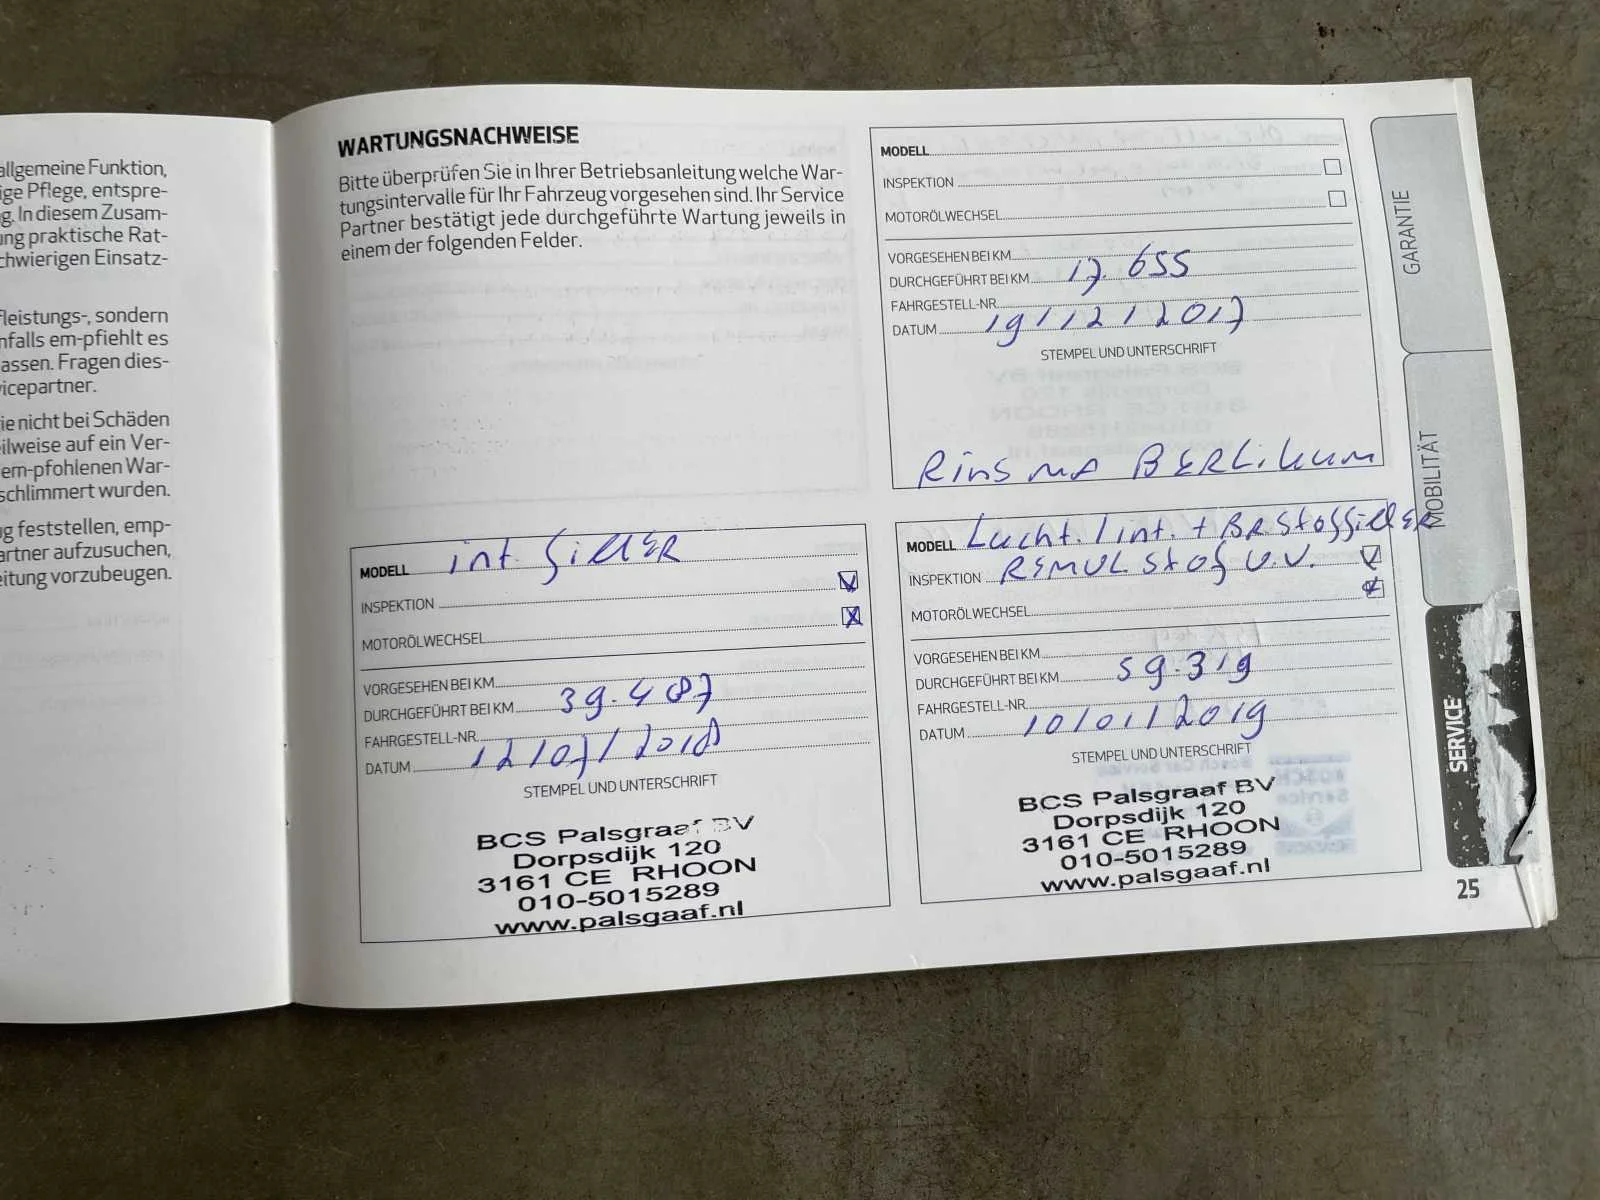 allgemeine Funktion,
ige Pflege, entspre-
g. In diesem Zusam-
ung praktische Rat-
chwierigen Einsatz-
fleistungs-, sondern
nfalls em-pfiehlt es
assen. Fragen dies-
vicepartner.
ie nicht bei Schäden
eilweise auf ein Ver-
em-pfohlenen War-
schlimmert wurden.
ug feststellen, emp-
artner aufzusuchen,
eitung vorzubeugen.
WARTUNGSNACHWEISE
Bitte überprüfen Sie in Ihrer Betriebsanleitung welche War-
tungsintervalle für Ihr Fahrzeug vorgesehen sind. Ihr Service
Partner bestätigt jede durchgeführte Wartung jeweils in
einem der folgenden Felder.
MODELL
INSPEKTION
MOTORÖLWECHSEL
VORGESEHEN BEI KM
DURCHGEFÜHRT BEI KM 17.655
FAHRGESTELL-NR.
DATUM 19/12/2017
STEMPEL UND UNTERSCHRIFT
Rinsma BERLikum
MODELL int. filtER
INSPEKTION V
MOTORÖLWECHSEL X
VORGESEHEN BEI KM
DURCHGEFÜHRT BEI KM 39.487
FAHRGESTELL-NR.
DATUM 12/07/2018
STEMPEL UND UNTERSCHRIFT
BCS Palsgraaf BV
Dorpsdijk 120
3161 CE RHOON
010-5015289
www.palsgaaf.nl
MODELL Lucht. / int. + BRStoffiltER
INSPEKTION REMVLStof V.V. V
MOTORÖLWECHSEL
VORGESEHEN BEI KM
DURCHGEFÜHRT BEI KM 59.319
FAHRGESTELL-NR.
DATUM 10/01/2019
STEMPEL UND UNTERSCHRIFT
BCS Palsgraaf BV
Dorpsdijk 120
3161 CE RHOON
010-5015289
www.palsgaaf.nl
GARANTIE
MOBILITÄT
SERVICE
25